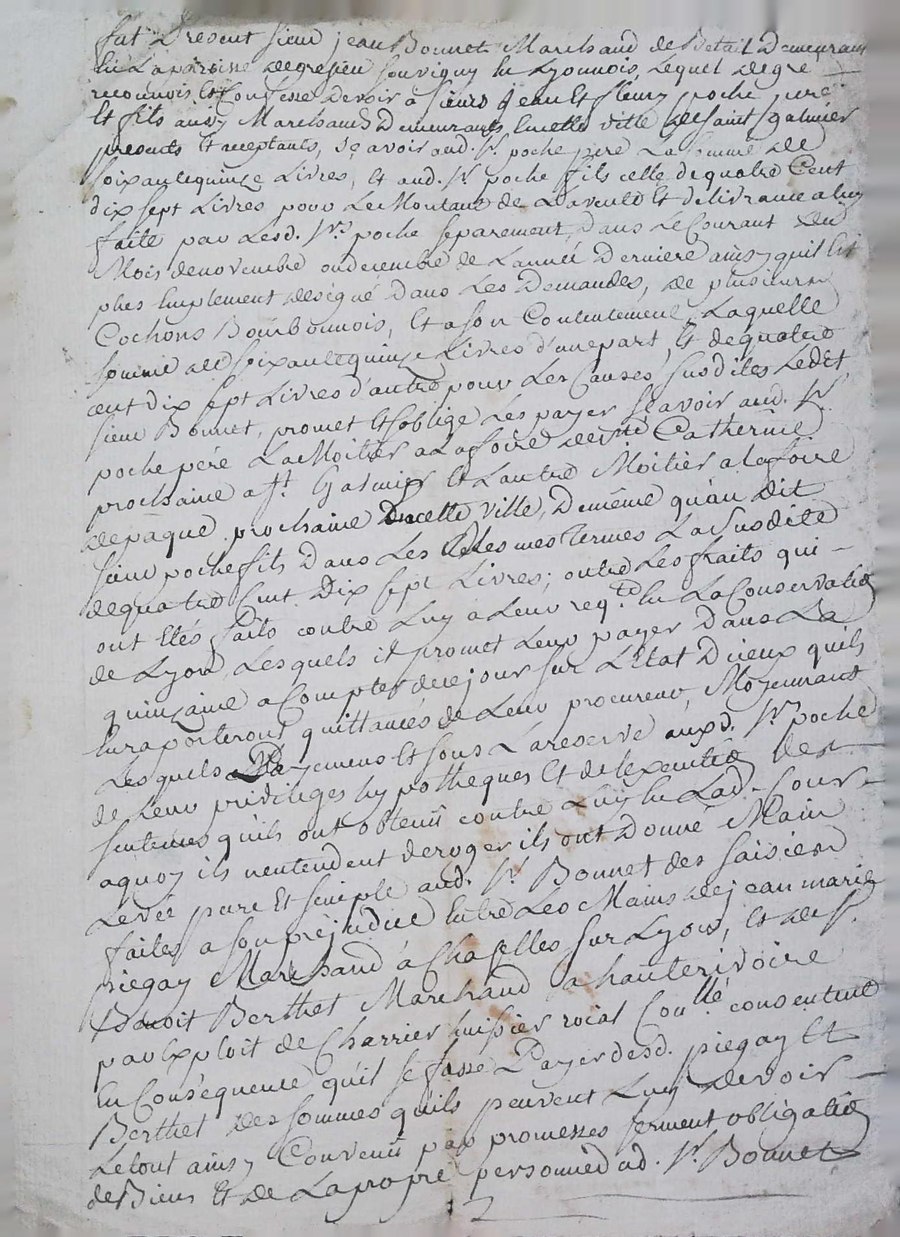 fut Present sieur jean Bonnet Marchand de Betail Demeurant
en La paroisse de gresieu souvigny en Lyonnois, Lequel de gré
reconnois Et Confesse Devoir à sieurs Jean Et fleury poche pere
Et fils aussy Marchands Demeurants En cette ville de saint galmier
presents Et acceptants, sçavoir aud. Sr. poche père La somme de
soixante quinze Livres, Et aud. Sr. poche fils celle de quatre Cent
dix sept Livres pour Le Montant de La vente Et délivrance a luy
faite par Lesd. Srs. poche séparement, dans Le Courant du
Mois de novembre ou decembre de L'année Derniere ainsy quil Est
plus Emplement désigné Dans Les Demandes, de plusieurs
Cochons Bourbonnois, Et a son Contentement, Laquelle
somme de soixante quinze Livres d'une part, Et de quatre
cent dix sept Livres d'autre pour Les Causes susdites Ledit
sieur Bonnet, promet Et s'oblige Les payer sçavoir aud. Sr.
poche père La Moitier a La foire de ste Catherine
prochaine a St. Galmier Et L'autre Moitier a la foire
de pâque prochaine Ducette ville, De même qu'au dit
sieur poche fils Dans Les mesmes termes La susdite
de quatre Cent Dix sept Livres; outre Les fraits qui -
ont Etés faits contre Luy à Leur reqte. En La Conservation
de Lyon, Lesquels il promet Leur payer Dans La
quinzaine a Compter de ce jour sur L'Etat D'iceux quils
En raporteront quittancés de Leur procureur, Moyennant
Lesquels Payemens Et sous La reserve auxd. Srs. poche
de Leur privileges hypotheques Et de l'execution des -
sentences qu'ils ont obtenü contre Luy En Lad. Cour -
a quoy ils n'entendent deroger ils ont Donné Main
Levée pure Et simple aud. Sr. Bonnet des saisies
faites a son préjudice Entre Les Mains de jean marie
piegay Marchand à Chaselles sur Lyon, Et de Sr.
Benoit Berthet Marchand a hauterivoire
par Exploit de Charrier huissier roial consentent
En Conséquence qu'il se fasse Payer desd. piegay Et
Berthet des sommes qu'ils peuvent Luy devoir -
Le tout ainsy Convenü par promesses serment obligation
de Biens Et de La propre personne dud. Sr. Bonnet